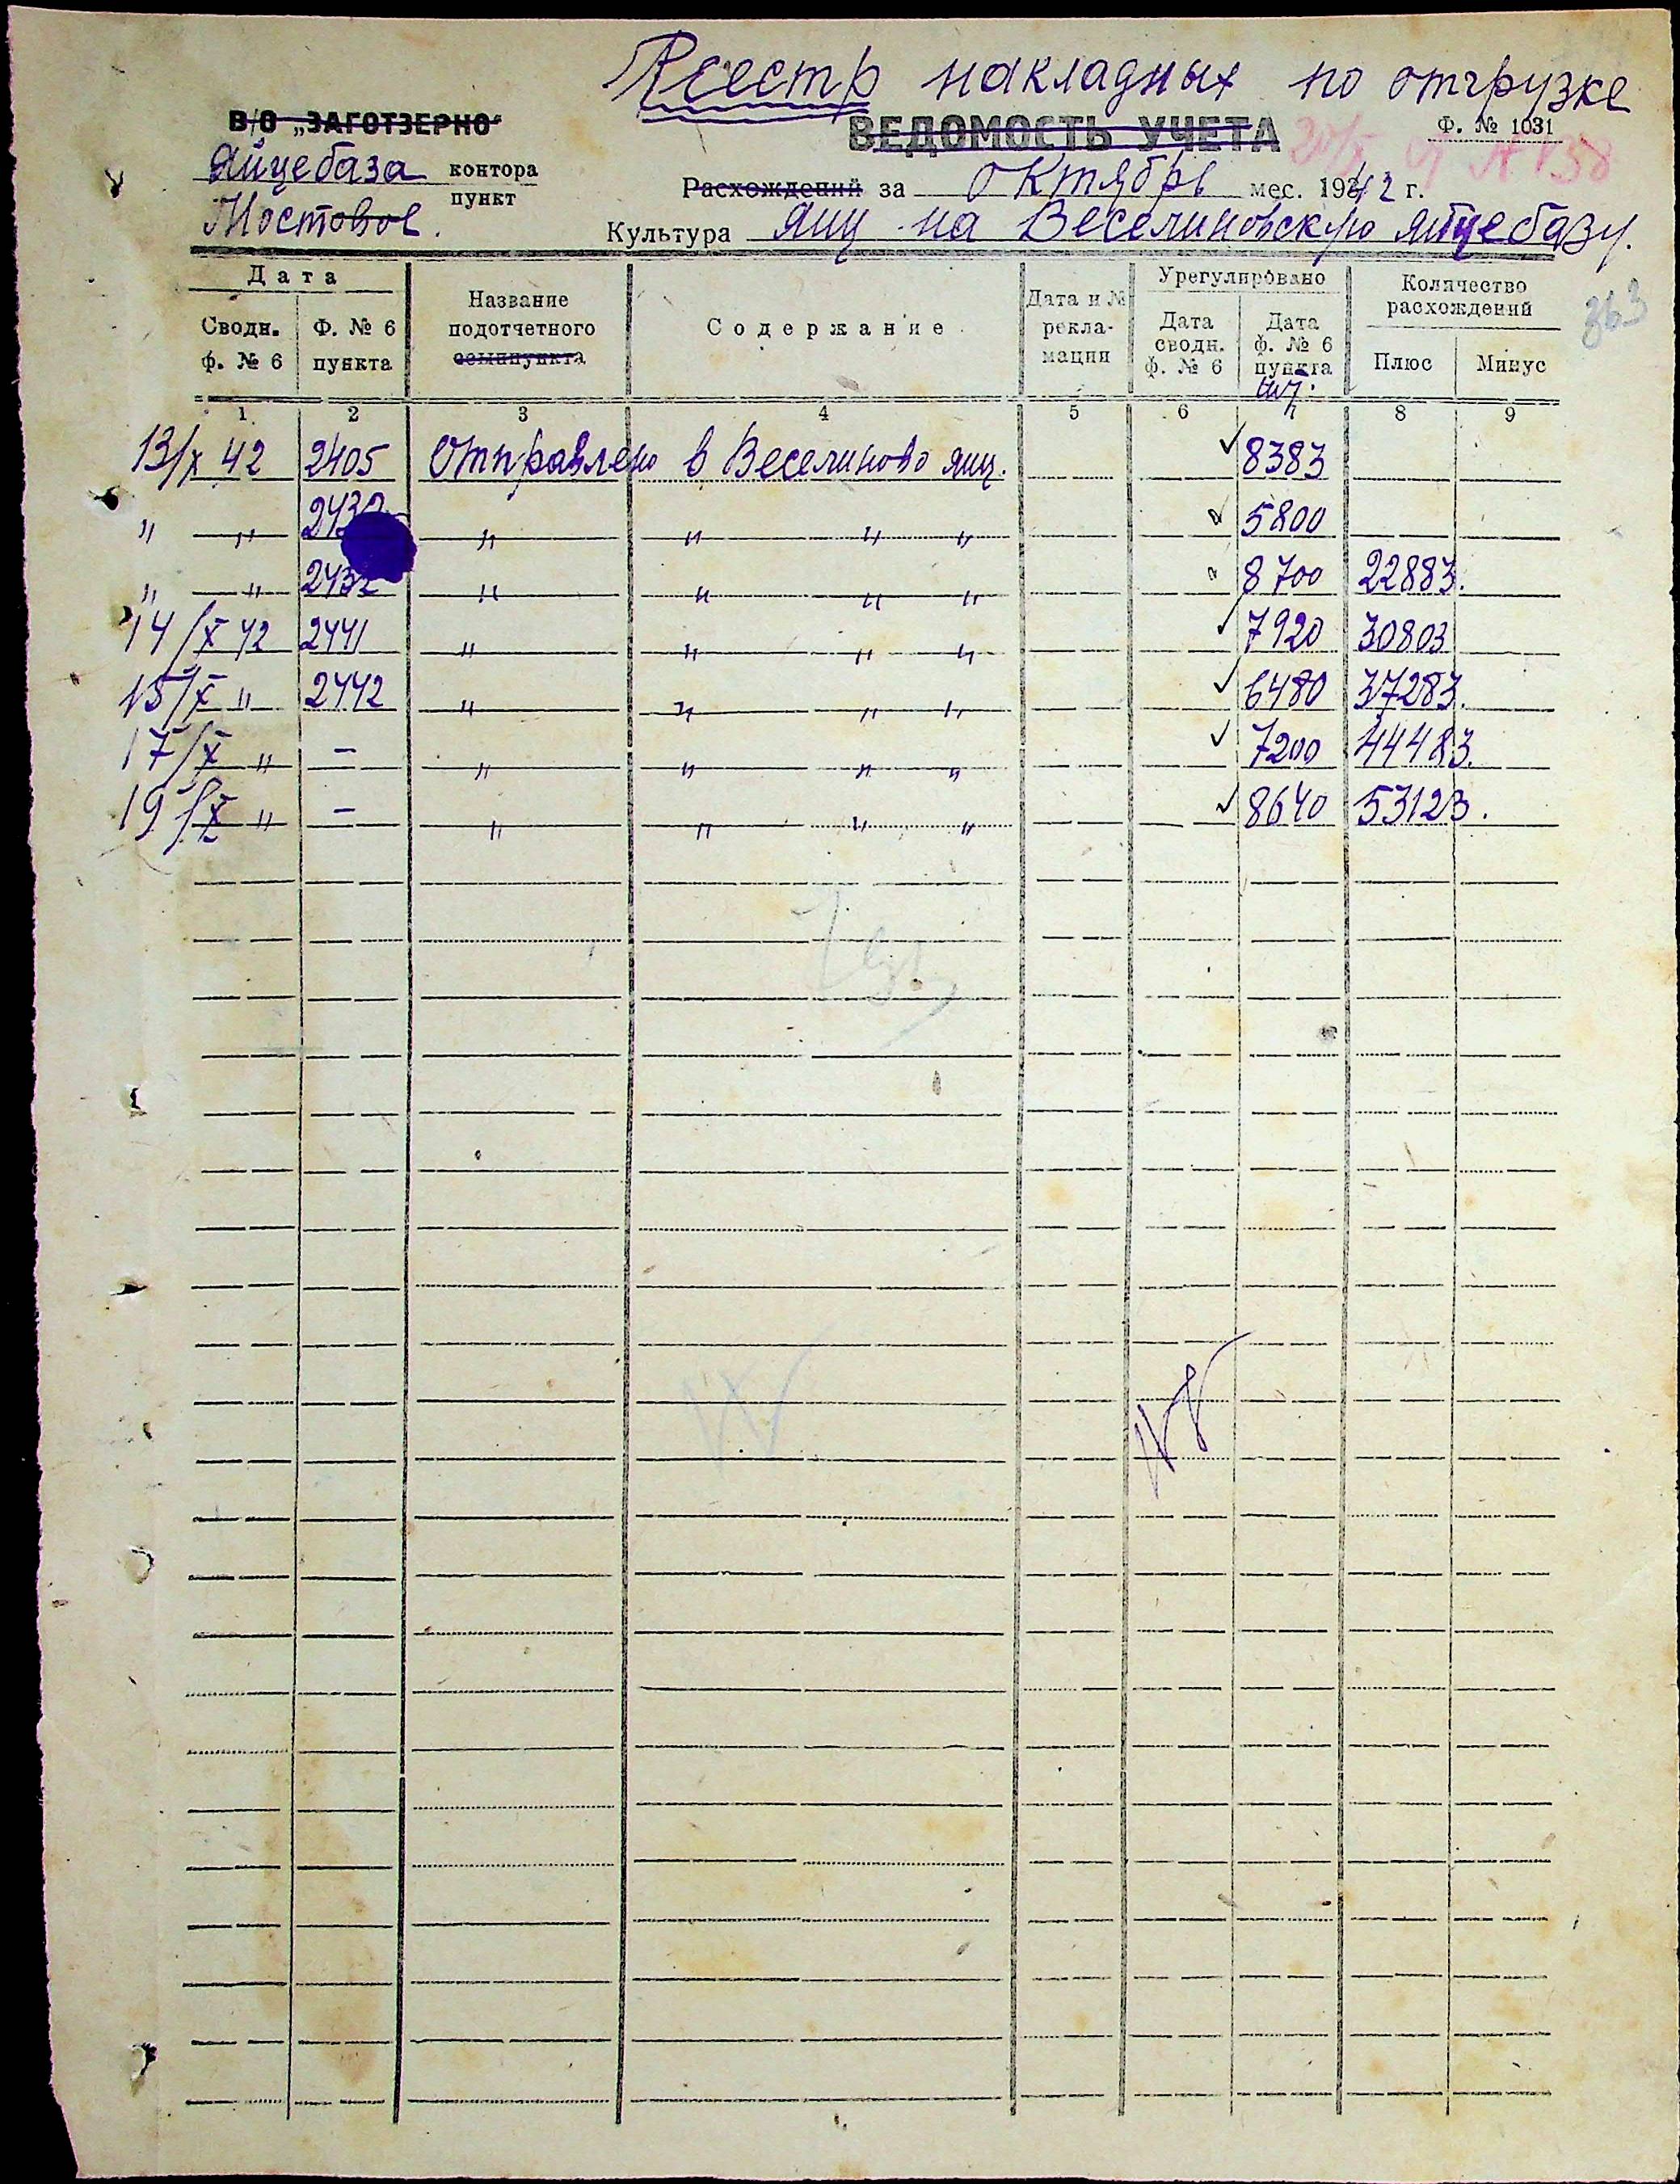 Реестр накладных по отгрузке
В/О „ЗАГОТЗЕРНО"
ВЕДОМОСТЬ УЧЕТА
Ф. № 1031
Яйцебаза контора
пункт
Мостовое.
Расхождений за октябрь мес. 1942 г.
Культура яиц на Веселиновскую яйцебазу.
363
Дата
Сводн. ф. № 6
Ф. № 6 пункта
Название подотчетного семпункта
Содержание
Дата и № рекламации
Урегулировано
Дата сводн. ф. № 6
Дата ф. № 6 пункта
шт.
Количество расхождений
Плюс
Минус
1 2 3 4 5 6 7 8 9
13/X 42 2405 Отправлено в Веселиново яиц. 8383
" " " " " " 5800
" " 2432 " " " " 8700 22883.
14/X 42 2441 " " " " 7920 30803
15/X " 2442 " " " " 6480 37283.
17/X " – " " " " 7200 44483.
19/X " – " " " " 8640 53123.